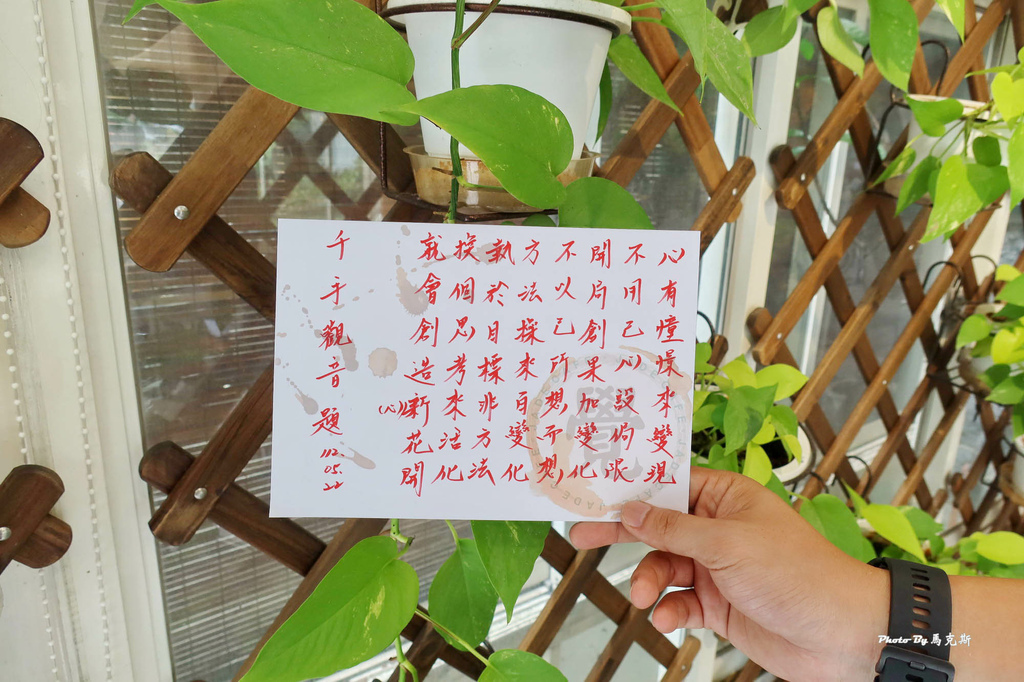 心有憧憬來變現
不用己心設侷限
開局創果加變化
不以己所想而想
方法採來百變化
執於目標非方法
換個思考來活化
就會創造新(心)花開
千手觀音題
112.05.22
覺
Photo By 馬克斯